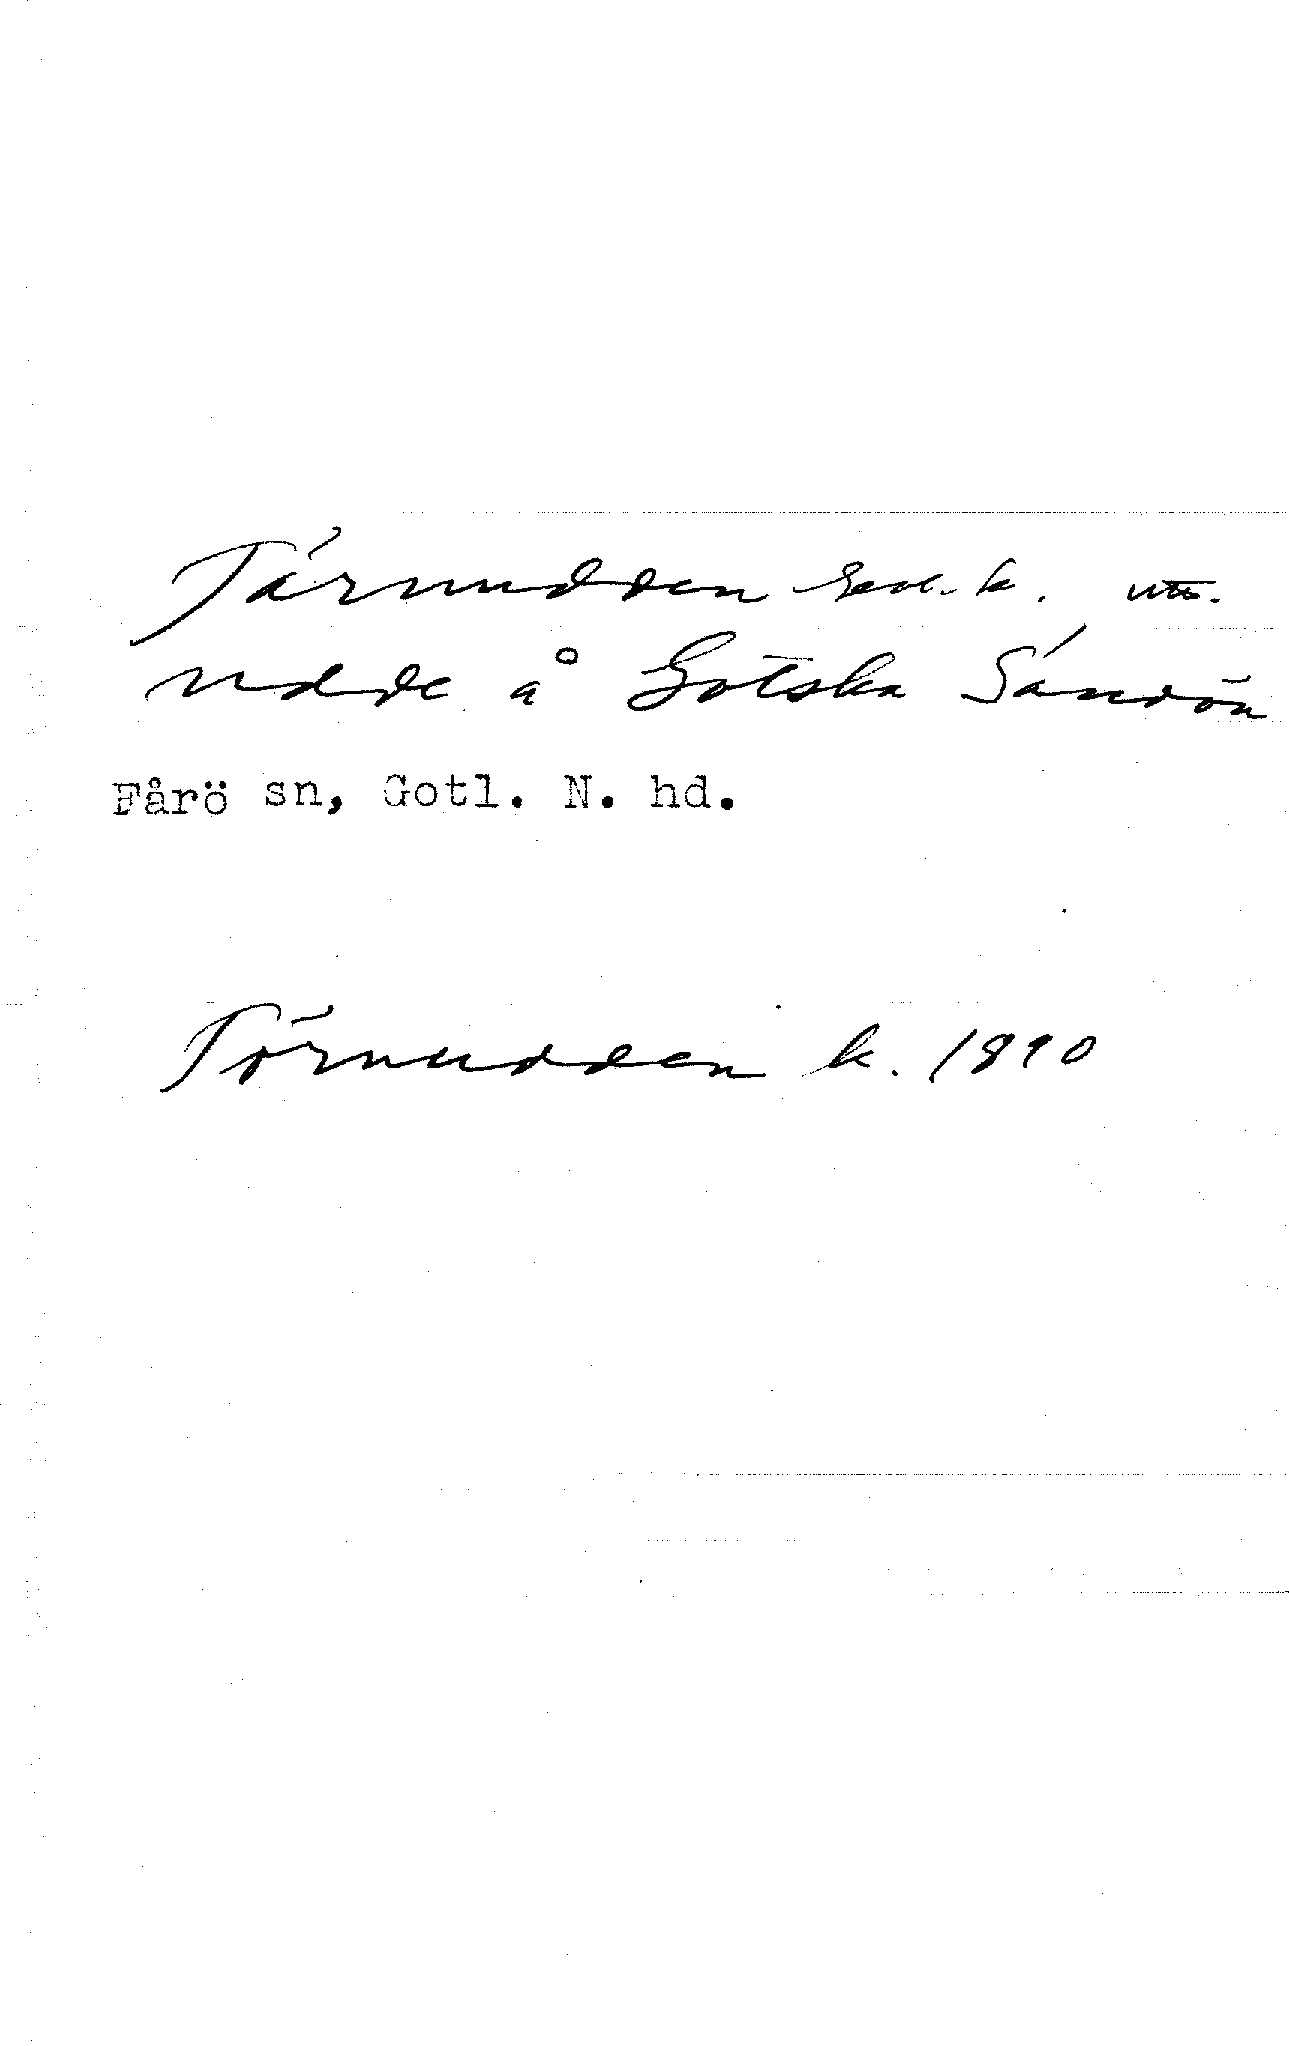 Tärnudden Geol. k. utb.
udde å Gotska Sandön
Fårö sn, Gotl. N. hd.
Törnudden k. 1890